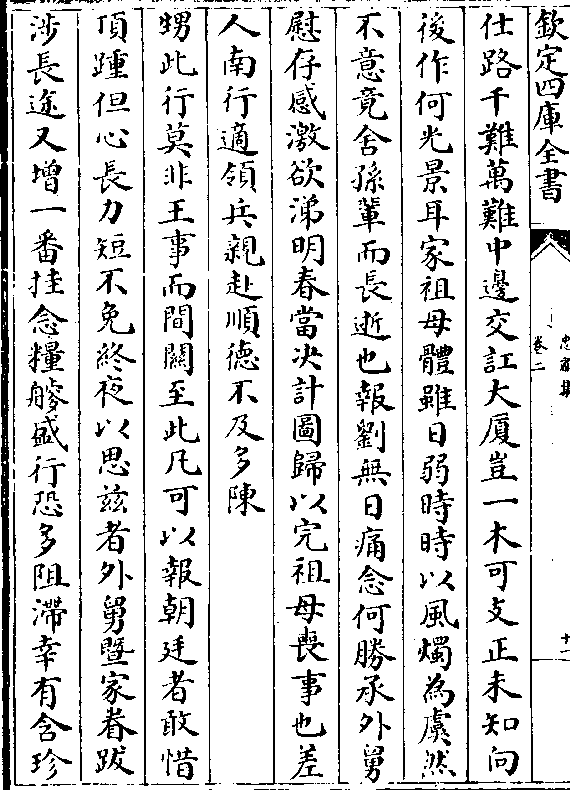 欽定四庫全書
忠肅集
卷二
十一
仕路千難萬難中邊交訌大厦豈一木可支正未知向
後作何光景耳家祖母體雖日弱時時以風燭為虞然
不意竟舍孫輩而長逝也報劉無日痛念何勝承外舅
慰存感激欲涕明春當决計圖歸以完祖母喪事也差
人南行適領兵親赴順德不及多陳
甥此行莫非王事而間關至此凡可以報朝廷者敢惜
頂踵但心長力短不免終夜以思兹者外舅暨家眷跋
涉長途又增一番挂念糧艘盛行恐多阻滯幸有含珍